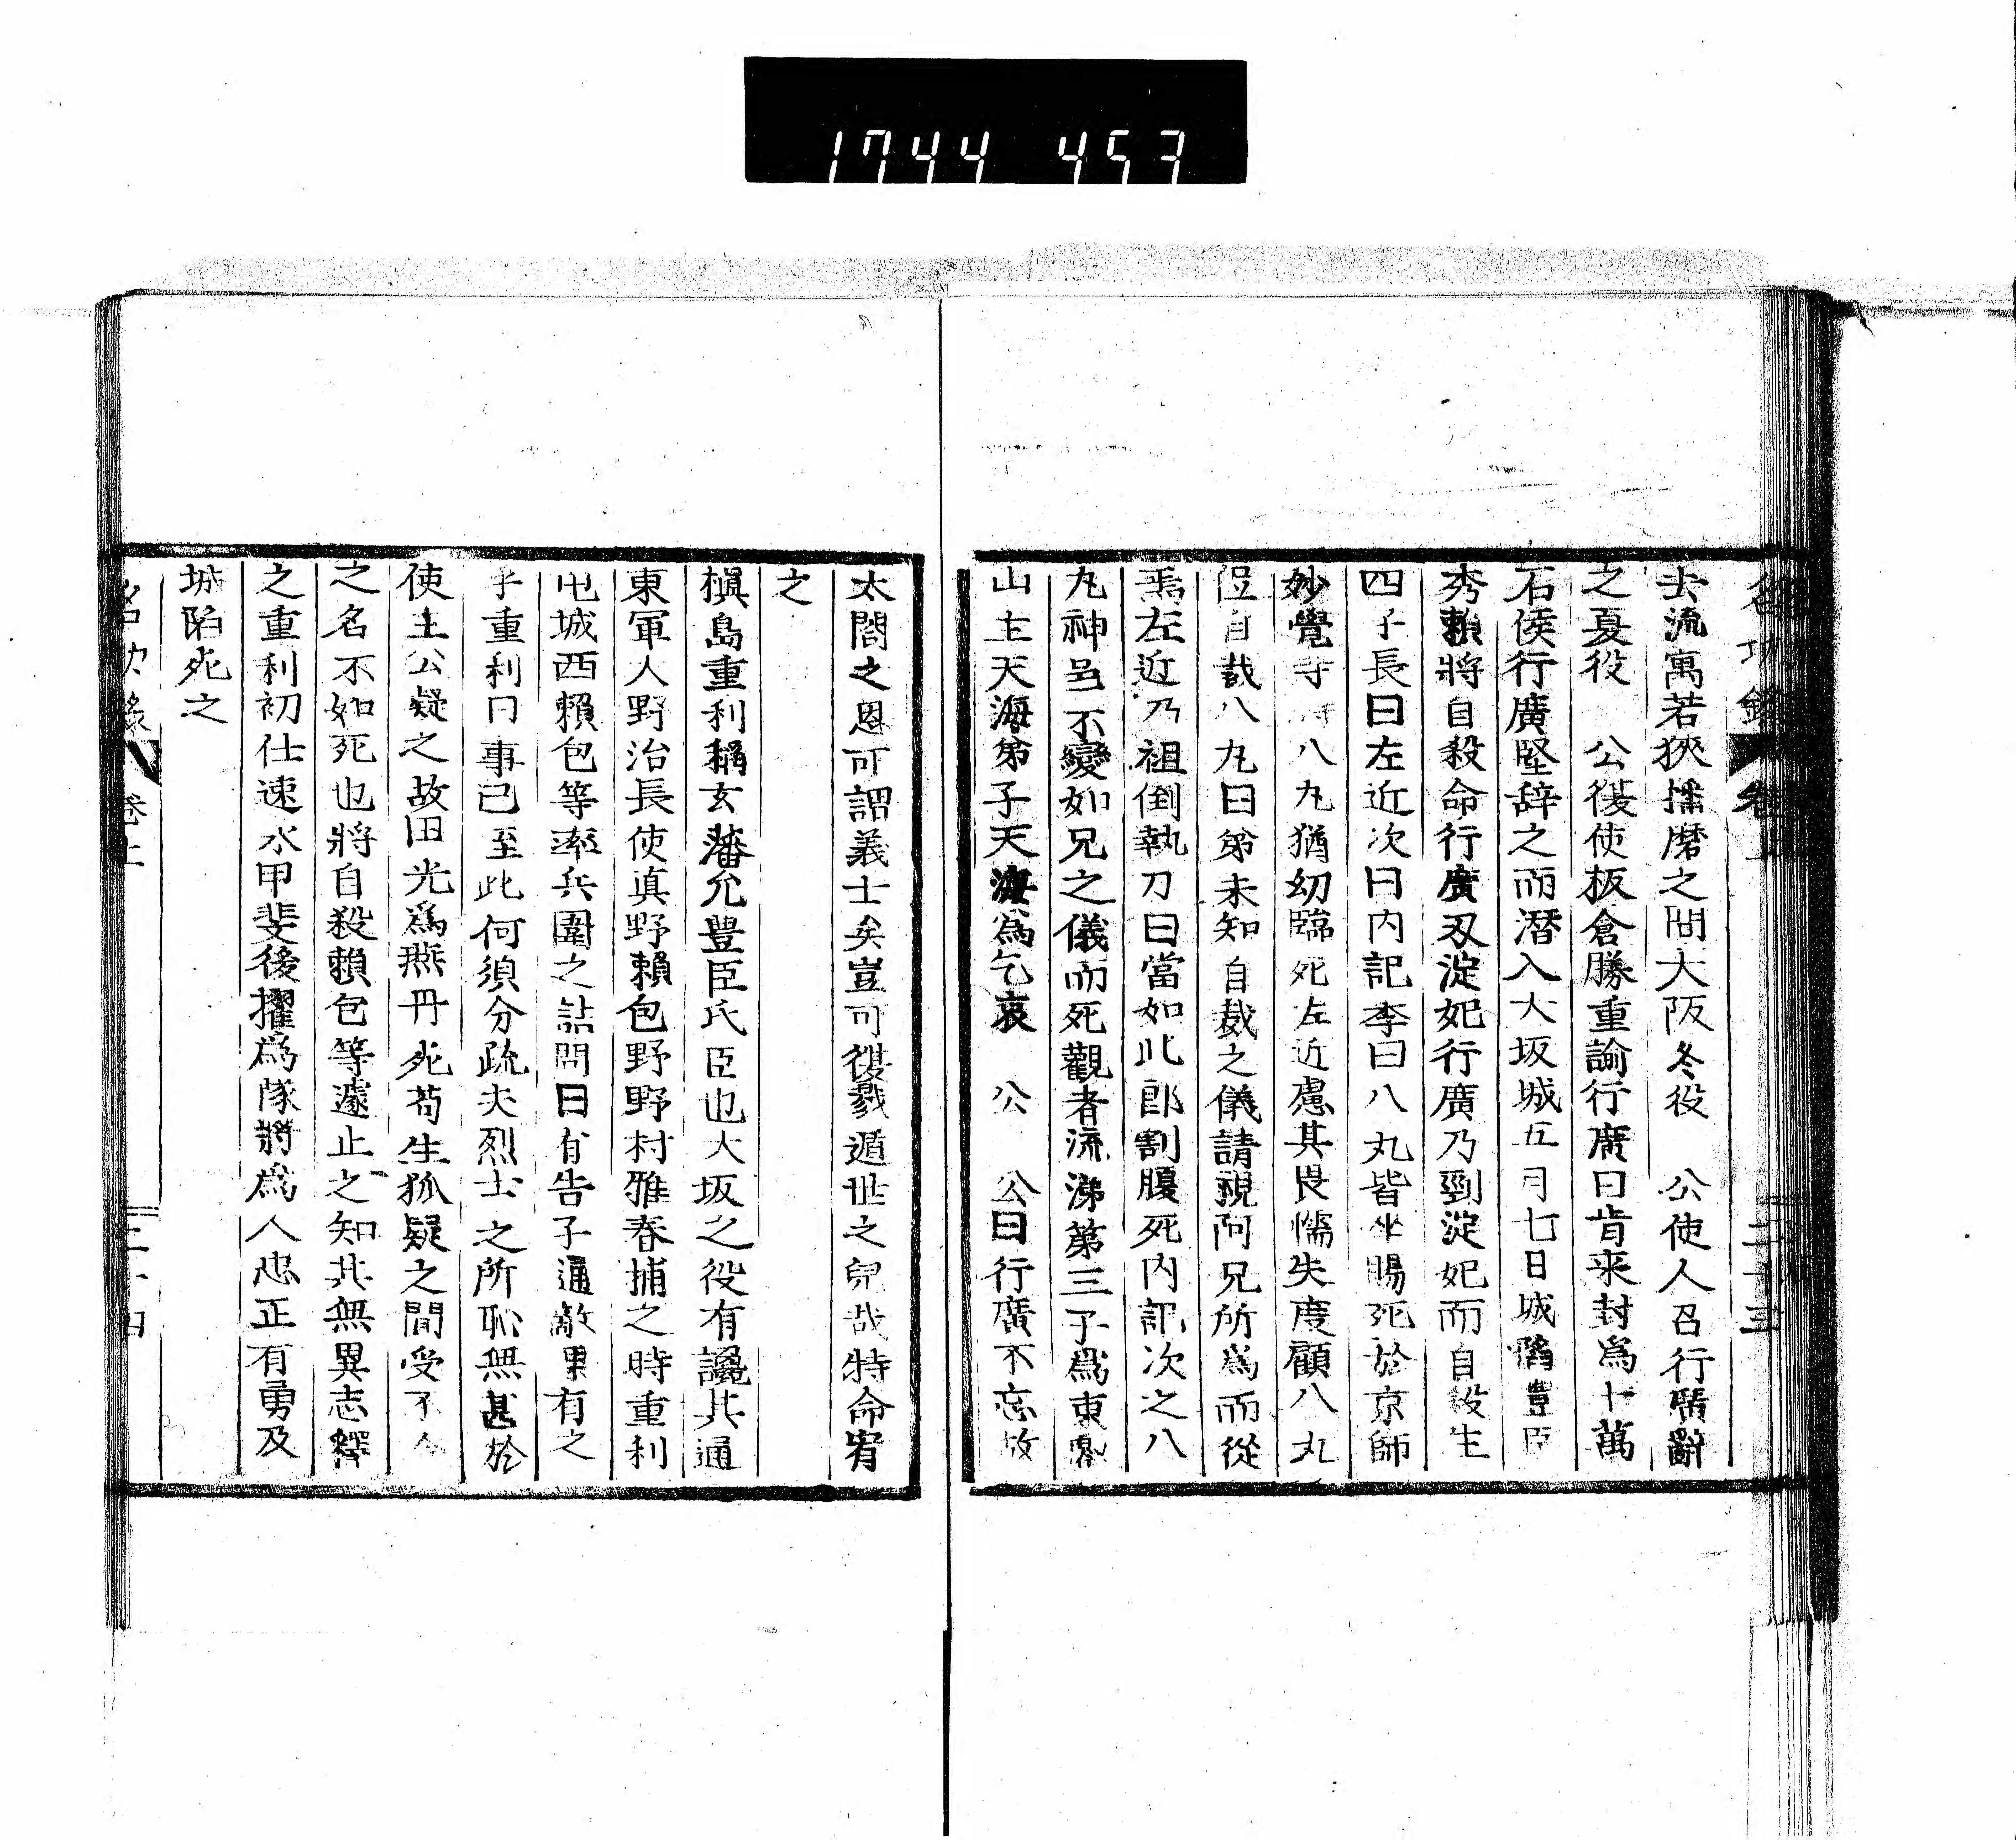 1744 457
去流寓若狹播磨之間大阪冬役　公使人召行廣辭
之夏役　公復使板倉勝重諭行廣曰肯来封爲十萬
石侯行廣堅辞之而潛入大坂城五月七日城陷豊臣
秀賴將自殺命行廣刃淀妃行廣乃剄淀妃而自殺生
四子長曰左近次曰内記李曰八丸皆坐賜死於京師
妙覺寺時八丸猶幼臨死左近慮其畏懦失度顧八丸
自裁八丸曰弟未知自裁之儀請視阿兄所爲而從
焉左近乃祖倒執刀曰當如此即割腹死内記次之八
丸神色不變如兄之儀而死觀者流涕第三子爲東
山主天海弟子天海爲乞哀　公　公曰行廣不忘故
太閤之恩可謂義士矣豈可復戮遁世之兒哉特命宥
之
槇島重利稱玄蕃允豊臣氏臣也大坂之役有讒其通
東軍人野治長使眞野賴包野野村雅春捕之時重利
屯城西賴包等率兵圍之詰問曰有告子通敵果有之
乎重利曰事已至此何須分疏夫烈士之所恥無甚於
使主公疑之故田光爲燕丹死苟生狐疑之間受不
之名不如死也將自殺賴包等遽止之知其無異志釋
之重利初仕速水甲斐後擢爲隊將爲人忠正有勇及
城陷死之
卷上